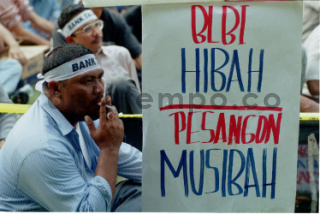 BANK
BANK
BLBI
HIBAH
PESANGON
MUSIBAH
tempo.co